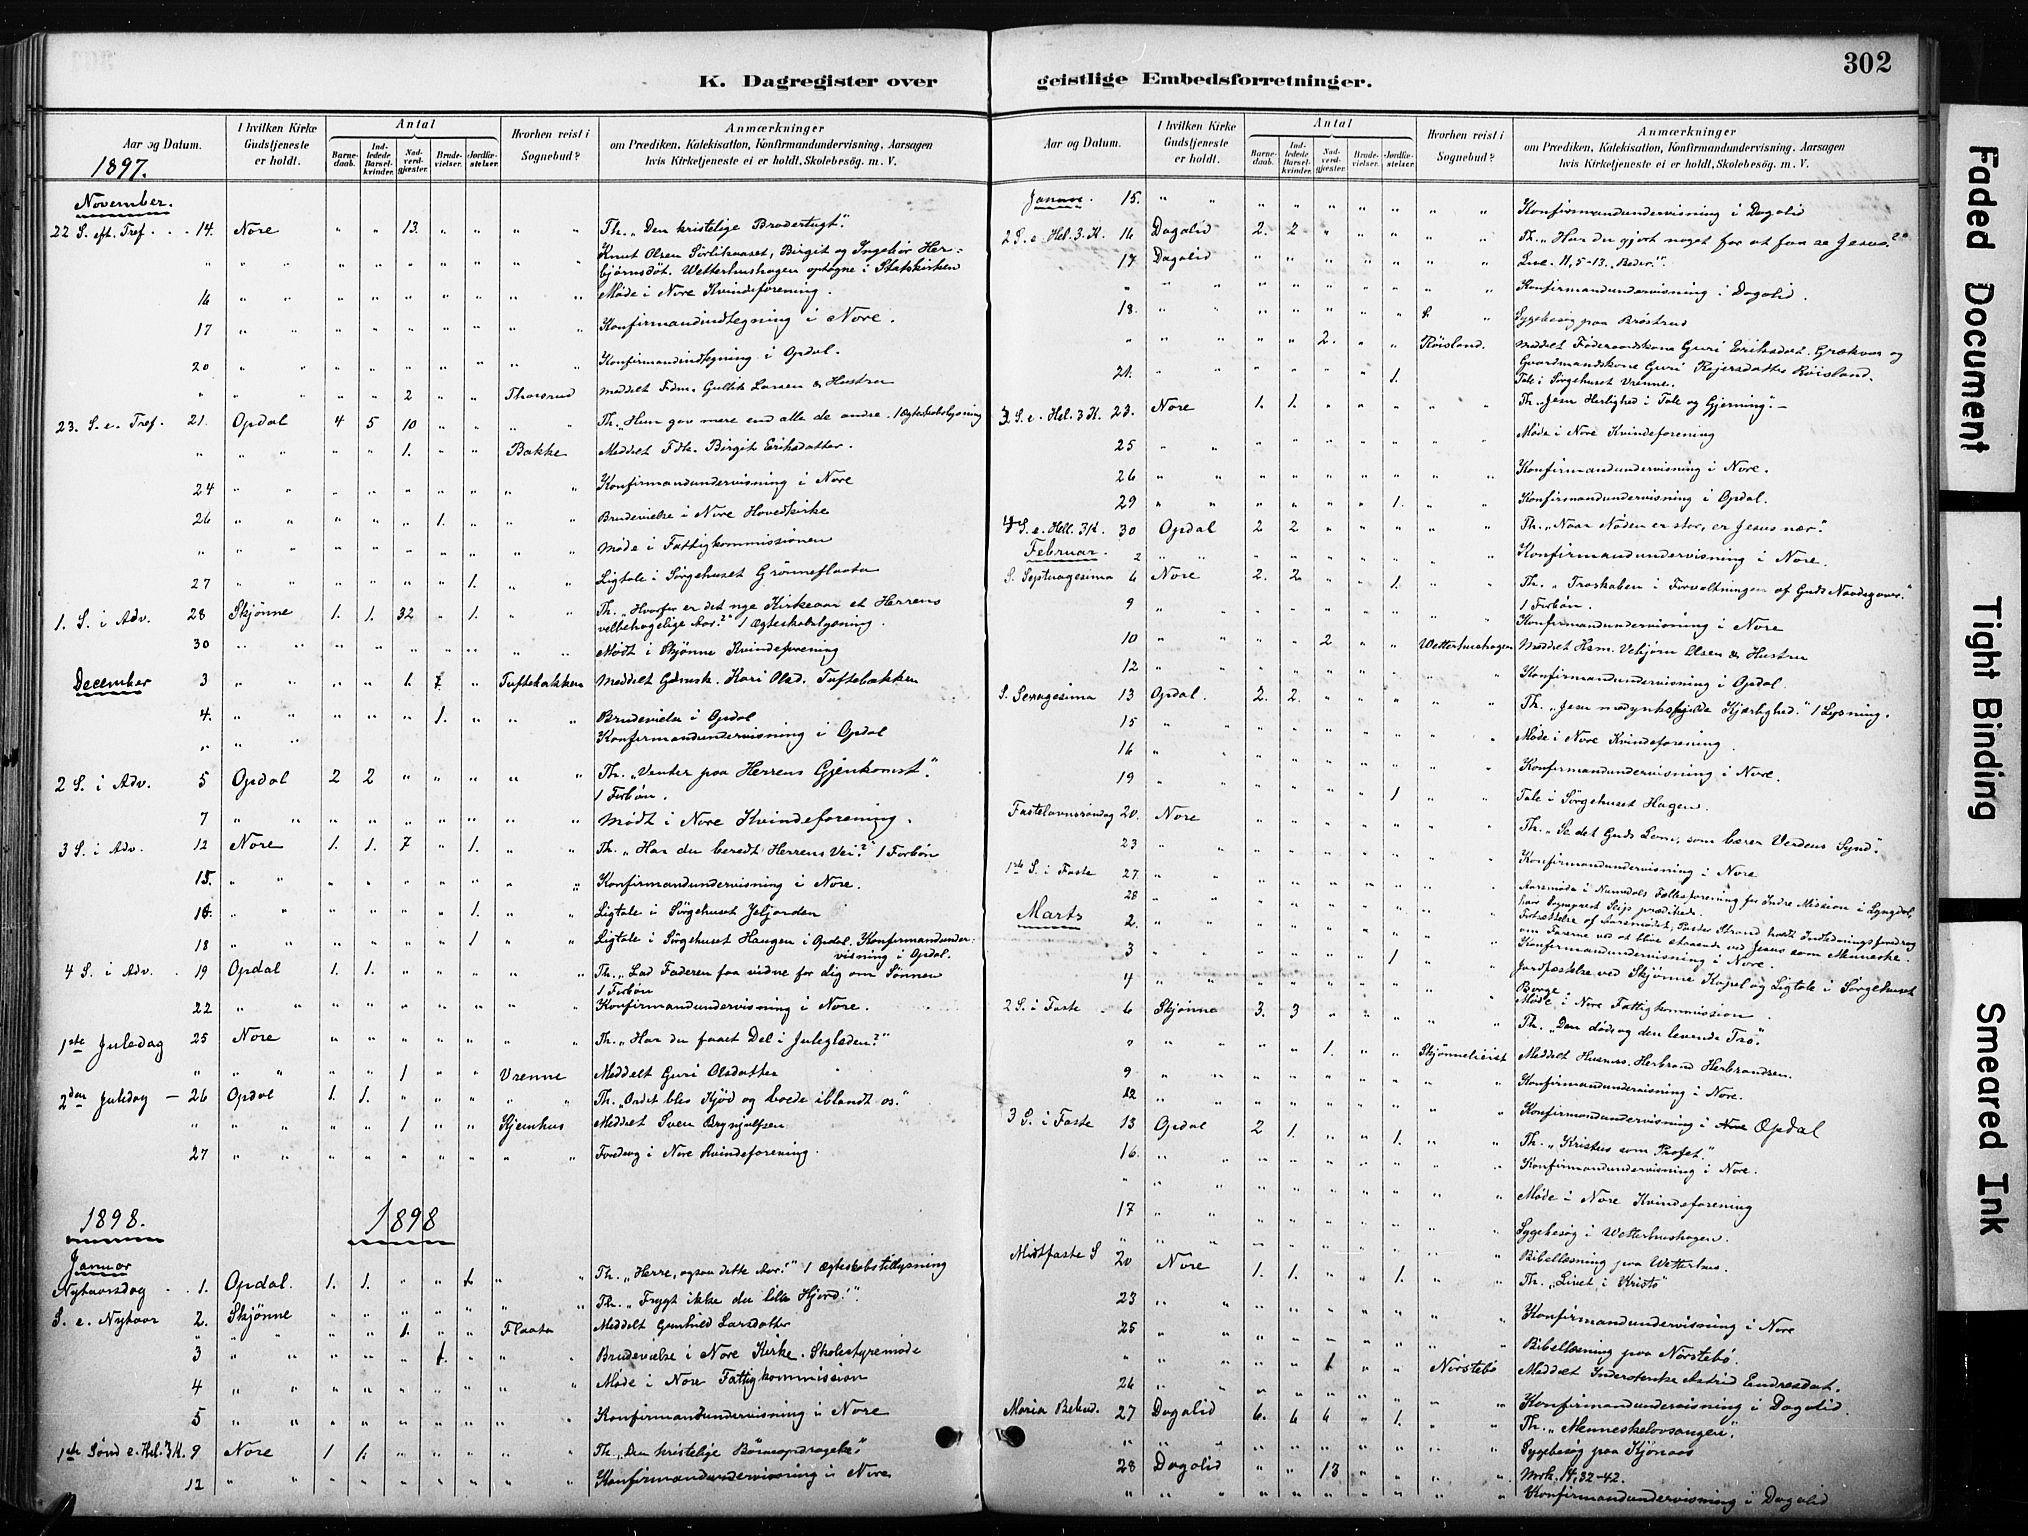 K. Dagregister over
Aar og Datum. I hvilken Kirke Gudstjeneste er holdt. Antal Barnedaab. Indledede Barselkvinder. Nadverdgjæster. Brudevielser. Jordfæstelser. Hvorhen reist i Sognebud? Anmærkninger om Prædiken, Katekisation, Konfirmandundervisning, Aarsagen hvis Kirketjeneste ei er holdt, Skolebesög. m. V.
1897.
November.
22 S. eft. Tref. 14. Nore " " 13. " " " " Th. „Den kristelige Brodertugt".
" " " " " " " " " Knut Olsen Sørlikaaset, Birgit og Ingebør Her-
bjørnsdøt. Wetterhushagen optagne i Statskirken
16 " " " " " " " " " Møde i Nore Kvindeforening.
17 " " " " " " " " " Konfirmandindtegning i Nore.
20 " " " " " " " Konfirmandindtegning i Opdal.
" " " " " 2 " " Thorsrud Meddelt Fdm. Gullik Larsen & Hustru
23. S. e. Tref. 21. Opdal 4 5 10 " " " " Th. „Hun gav mere end alle de andre. 1 Ægteskabslysning
" " " " " 1. " " Bakke Meddelt Fdk. Birgit Eriksdatter.
24 " " " " " " " " " Konfirmandundervisning i Nore
26 " " " " " 1. " " " Brudevielse i Nore Hovedkirke
" " " " " " " " " " Møde i Fattigkommissionen
27 " " " " " " 1. " " Ligtale i Sørgehuset Grønneflaata
1. S. i Adv. 28 Skjønne 1. 1. 32 " 1. " " Th. „Hvorfor er det nye Kirkeaar et Herrens
velbehagelige Aar?" 1 Ægteskabslysning.
30 " " " " " " " " " Mødt i Skjønne Kvindeforening
December 3 " " " " 1. " Tuftebakken Meddelt Gdmsk. Kari Olsd. Tuftebakken
4. " " " " " 1. " " " Brudevielse i Opdal
" " " Konfirmandundervisning i Opdal
2 S. i Adv. 5 Opdal 2 2 " " " " " Th. „Venter paa Herrens Gjenkomst".
1 Forbøn.
7 " " " " " " " " " Mødt i Nore Kvindeforening.
3 S. i Adv. 12 Nore 1. 1. 7 " 1. " " Th. „Har du beredt Herrens Vei?" 1 Forbøn
15. " " " " " " " " " Konfirmandundervisning i Nore.
16. " " " " " " 1. " " Ligtale i Sørgehuset Jeljorden
18 " " " " " " 1 " " Ligtale i Sørgehuset Haugen i Opdal. Konfirmandunder-
visning i Opdal.
4 S. i Adv. 19 Opdal 1. 1. " " " " " Th. „Lad Faderen faa vidne for dig om Sønnen
1 Forbøn
22 " " " " " " " " " Konfirmandundervisning i Nore.
1ste Juledag 25 Nore " " " " " " " Th. „Har du faaet Del i Juleglæden?"
" " " " " 1 " " Vrenne Meddelt Guri Olsdatter
2den Juledag - 26 Opdal 1. 1. " " " " " Th. „Ordet blev Kjød og boede iblandt os."
" " " " " 1 " " Kjemhus Meddelt Sven Brynjulfsen
27 " " " " " " " " " Foredrag i Nore Kvindeforening.
1898. 1898
Januar
Nytaarsdag 1. Opdal. 1. 1. " " 1. " " Th. „Herre, ogsaa dette Aar!" 1 Ægteskabstillysning
S. e. Nytaar 2. Skjønne " " " " " " " Th. „Frygt ikke du lille Hjord!".
" " " " " 1. " " Flaata Meddelt Gunhild Larsdatter
3 " " " " " 1. " " " Brudevielse i Nore Kirke. Skolestyremøde
4 " " " " " " " " " Møde i Nore Fattigkommission
5 " " " " " " " " " Konfirmandundervisning i Nore
1ste Sønd e. Hel. 3 K. 9 Nore 1 1. " " " " " Th. „Den kristelige Børneopdragelse"
12 " " " " " " " " " Konfirmandundervisning i Nore
geistlige Embedsforretninger.
302
Aar og Datum. I hvilken Kirke Gudstjeneste er holdt. Antal Barnedaab. Indledede Barselkvinder. Nadverdgjæster. Brudevielser. Jordfæstelser. Hvorhen reist i Sognebud? Anmærkninger om Prædiken, Katekisation, Konfirmandundervisning, Aarsagen hvis Kirketjeneste ei er holdt, Skolebesög. m. V.
Januar. 15. " " " " " " " " " Konfirmandundervisning i Dagalid
2 S. e. Hel. 3. K. 16 Dagalid 2. 2 " " " " " Th. „Har du gjort noget for at faa se Jesus?"
17 Dagalid " " " " " " " Luc. 11, 5-13. „Beder!".
" " " " " " " " " " Konfirmandundervisning i Dagalid.
18. " " " " " " " " Sygebesøg paa Brøstrud
" " " " " 2. " " Røisland. Meddelt Føderaadskone Guri Eriksdat. Grækvar og
Gaardmandskone Guri Reiersdatter Røisland.
21. " " " " " " 1. " " Tale i Sørgehuset Vrenne.
3 S. e. Hel. 3 K. 23. Nore 1. 1. " " " " " Th. „Jesu Herlighed i Tale og Gjerning". -
25 " " " " " " " " " Møde i Nore Kvindeforening
26 " " " " " " " " " Konfirmandundervisning i Nore.
29 " " " " " " 1. " " Konfirmandundervisning i Opdal.
4 S. e. Hell. 3 K. 30 Opdal 2 2 " " " " " Th. „Naar Nøden er stor, er Jesus nær".
Februar. 2 " " " " " " " " " Konfirmandundervisning i Nore.
S. Septuagesima 6 Nore 2. 2 " " 1. " " Th. „Troskaben i Forvaltningen af Guds Naadegaver."
1 Forbøn.
9 " " " " " " " " " Konfirmandundervisning i Nore
10 " " " " 2 " " Wetterhushagen Meddelt Hsm. Vebjørn Olsen & Hustru
12 " " " " " " " " " Konfirmandundervisning i Opdal.
S. Sexagesima 13 Opdal. 2. 2. " " " " " Th. „Jesu medynksfulde Kjærlighed." 1 Lysning.
15 " " " " " " " " " Møde i Nore Kvindeforening
16 " " " " " " " " " Konfirmandundervisning i Nore.
19 " " " " " " 1 " " Tale i Sørgehuset Hagen.
Fastelavnssøndag 20. Nore " " " " " " " Th. „Se det Guds Lam, som bærer Verdens Synd".
23 " " " " " " " " " Konfirmandundervisning i Nore
1ste S. i Faste 27 " " " " " " " " " Aarsmøde i Numedals Fællesforening for Indre Mission i Lyngdal,
hvor Sogneprest Slip prædikede.
28 " " " " " " " Fortsættelse af Aarsmødet, Pastor Strand holdt Indledningsforedrag
om Farerne ved at blive staaende ved Jesus som Menneske.
Marts 2. " " " " " " " " " Konfirmandundervisning i Nore.
3 " " " " " " 1 " " Jordfæstelse ved Skjønne Kapel og Ligtale i Sørgehuset
Borge
4 " " " " " " " " " Møde i Nore Fattigkommission
2 S. i Faste 6 Skjønne 3. 3 " " " " " Th. „Den døde og den levende Tro".
" " " " " 1. " " Skjønnelieiet Meddelt Husmds. Herbrand Herbrandsen.
9 " " " " " " " " " Konfirmandundervisning i Nore.
12 " " " " " " " " " Konfirmandundervisning i Nore Opdal
3 S. i Faste 13 Opdal 2 1. " " 1. " " Th. „Kristus som Profet".
16. " " " " " " " " " Konfirmandundervisning i Nore.
" " " " " " " " " " Møde i Nore Kvindeforening
17 " " " " " " " " " Sygebesøg i Wetterhushagen.
" " " " " " " " " " Bibellæsning paa Wetterhus.
Midtfaste S 20 Nore 1. 1. " " 1. " " Th. „Livet i Kristo"
23 " " " " " " " " " Konfirmandundervisning i Nore
25 " " " " " " " " " Bibellæsning paa Nørstebø.
" " " " " 1 " " Nørstebø Meddelt Inderstenke Astrid Endresdat.
26 " " " " " " " " " Konfirmandundervisning i Dagalid.
Maria Bebud. 27 Dagalid 6. 6 6 " 1. " " Th. „Menneskelovsangen".
" " " " " " " " " " Sygebesøg paa Kjønaas
28 Dagalid " " 13 " " " " Mrk. 14, 32-42.
" " " " " " " " " " Konfirmandundervisning i Dagalid
Faded Document
Tight Binding
Smeared Ink